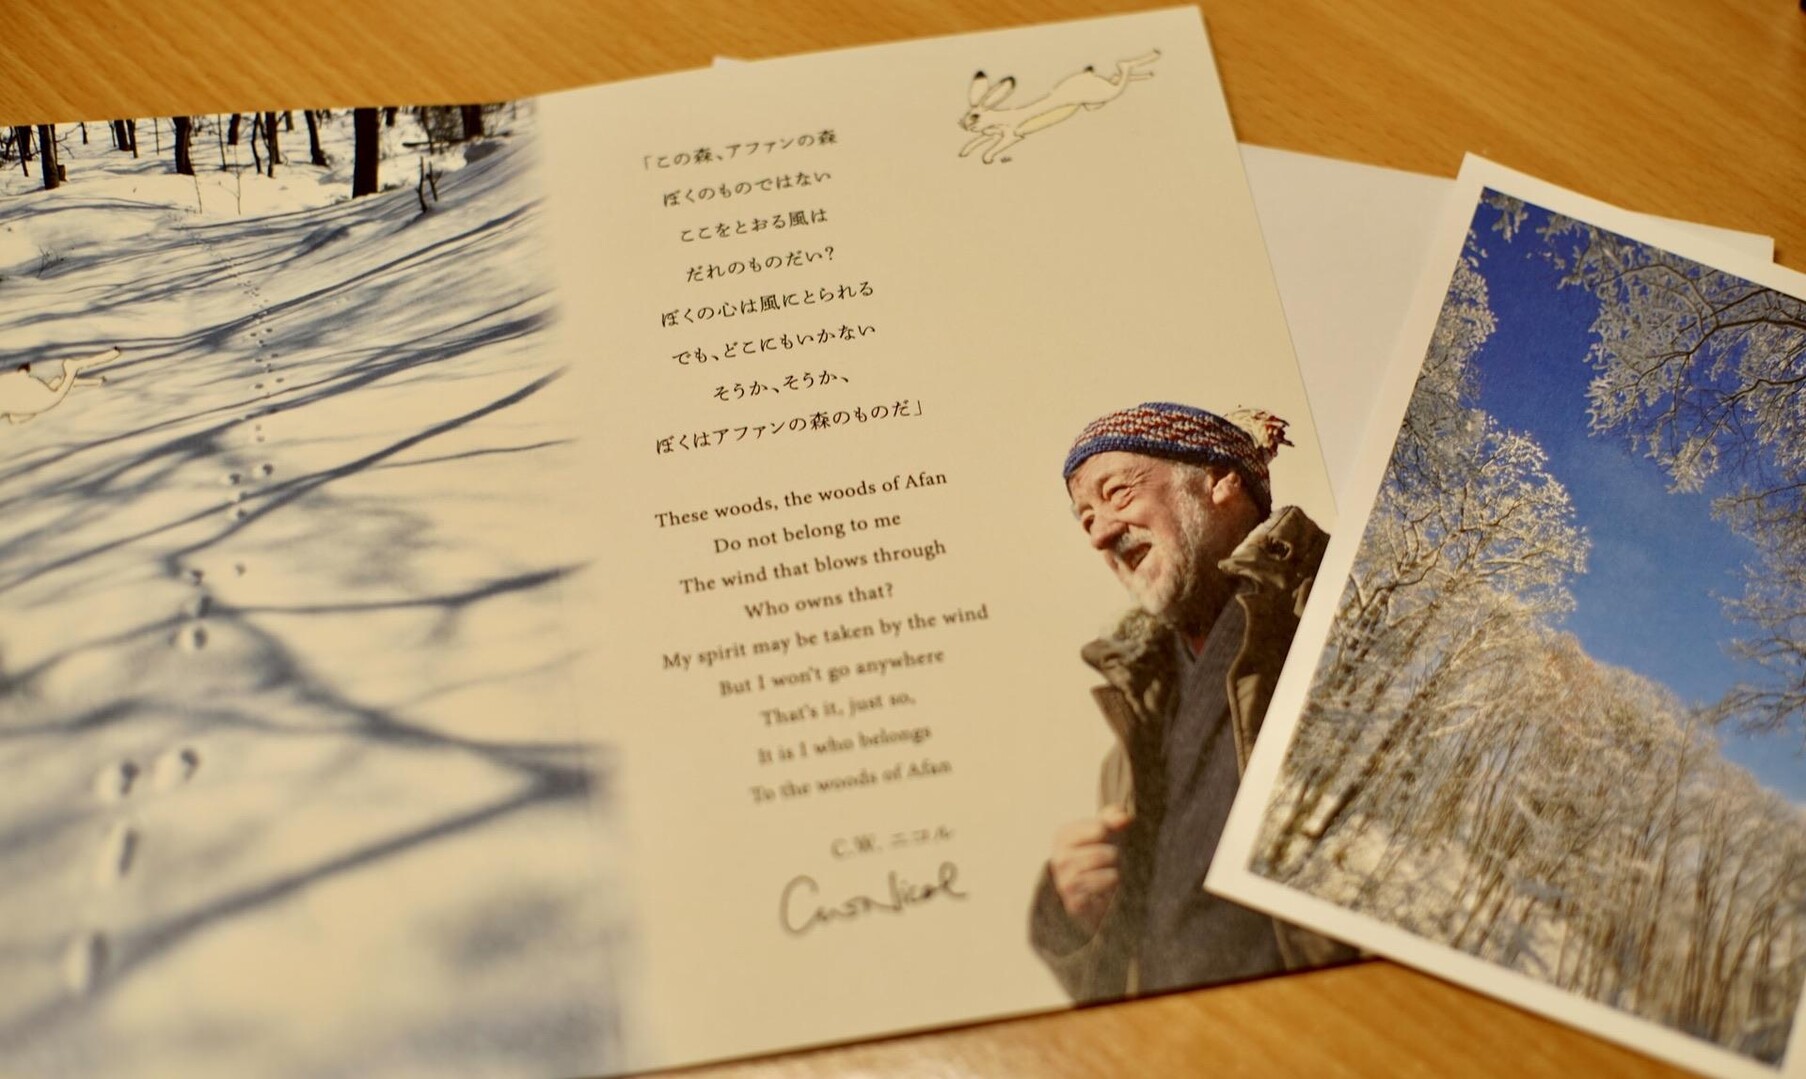 「この森、アファンの森
ぼくのものではない
ここをとおる風は
だれのものだい?
ぼくの心は風にとられる
でも、どこにもいかない
そうか、そうか、
ぼくはアファンの森のものだ」
These woods, the woods of Afan
Do not belong to me
The wind that blows through
Who owns that?
My spirit may be taken by the wind
But I won't go anywhere
That's it, just so,
It is I who belongs
To the woods of Afan
C.W. ニコル
C.W. Nicol